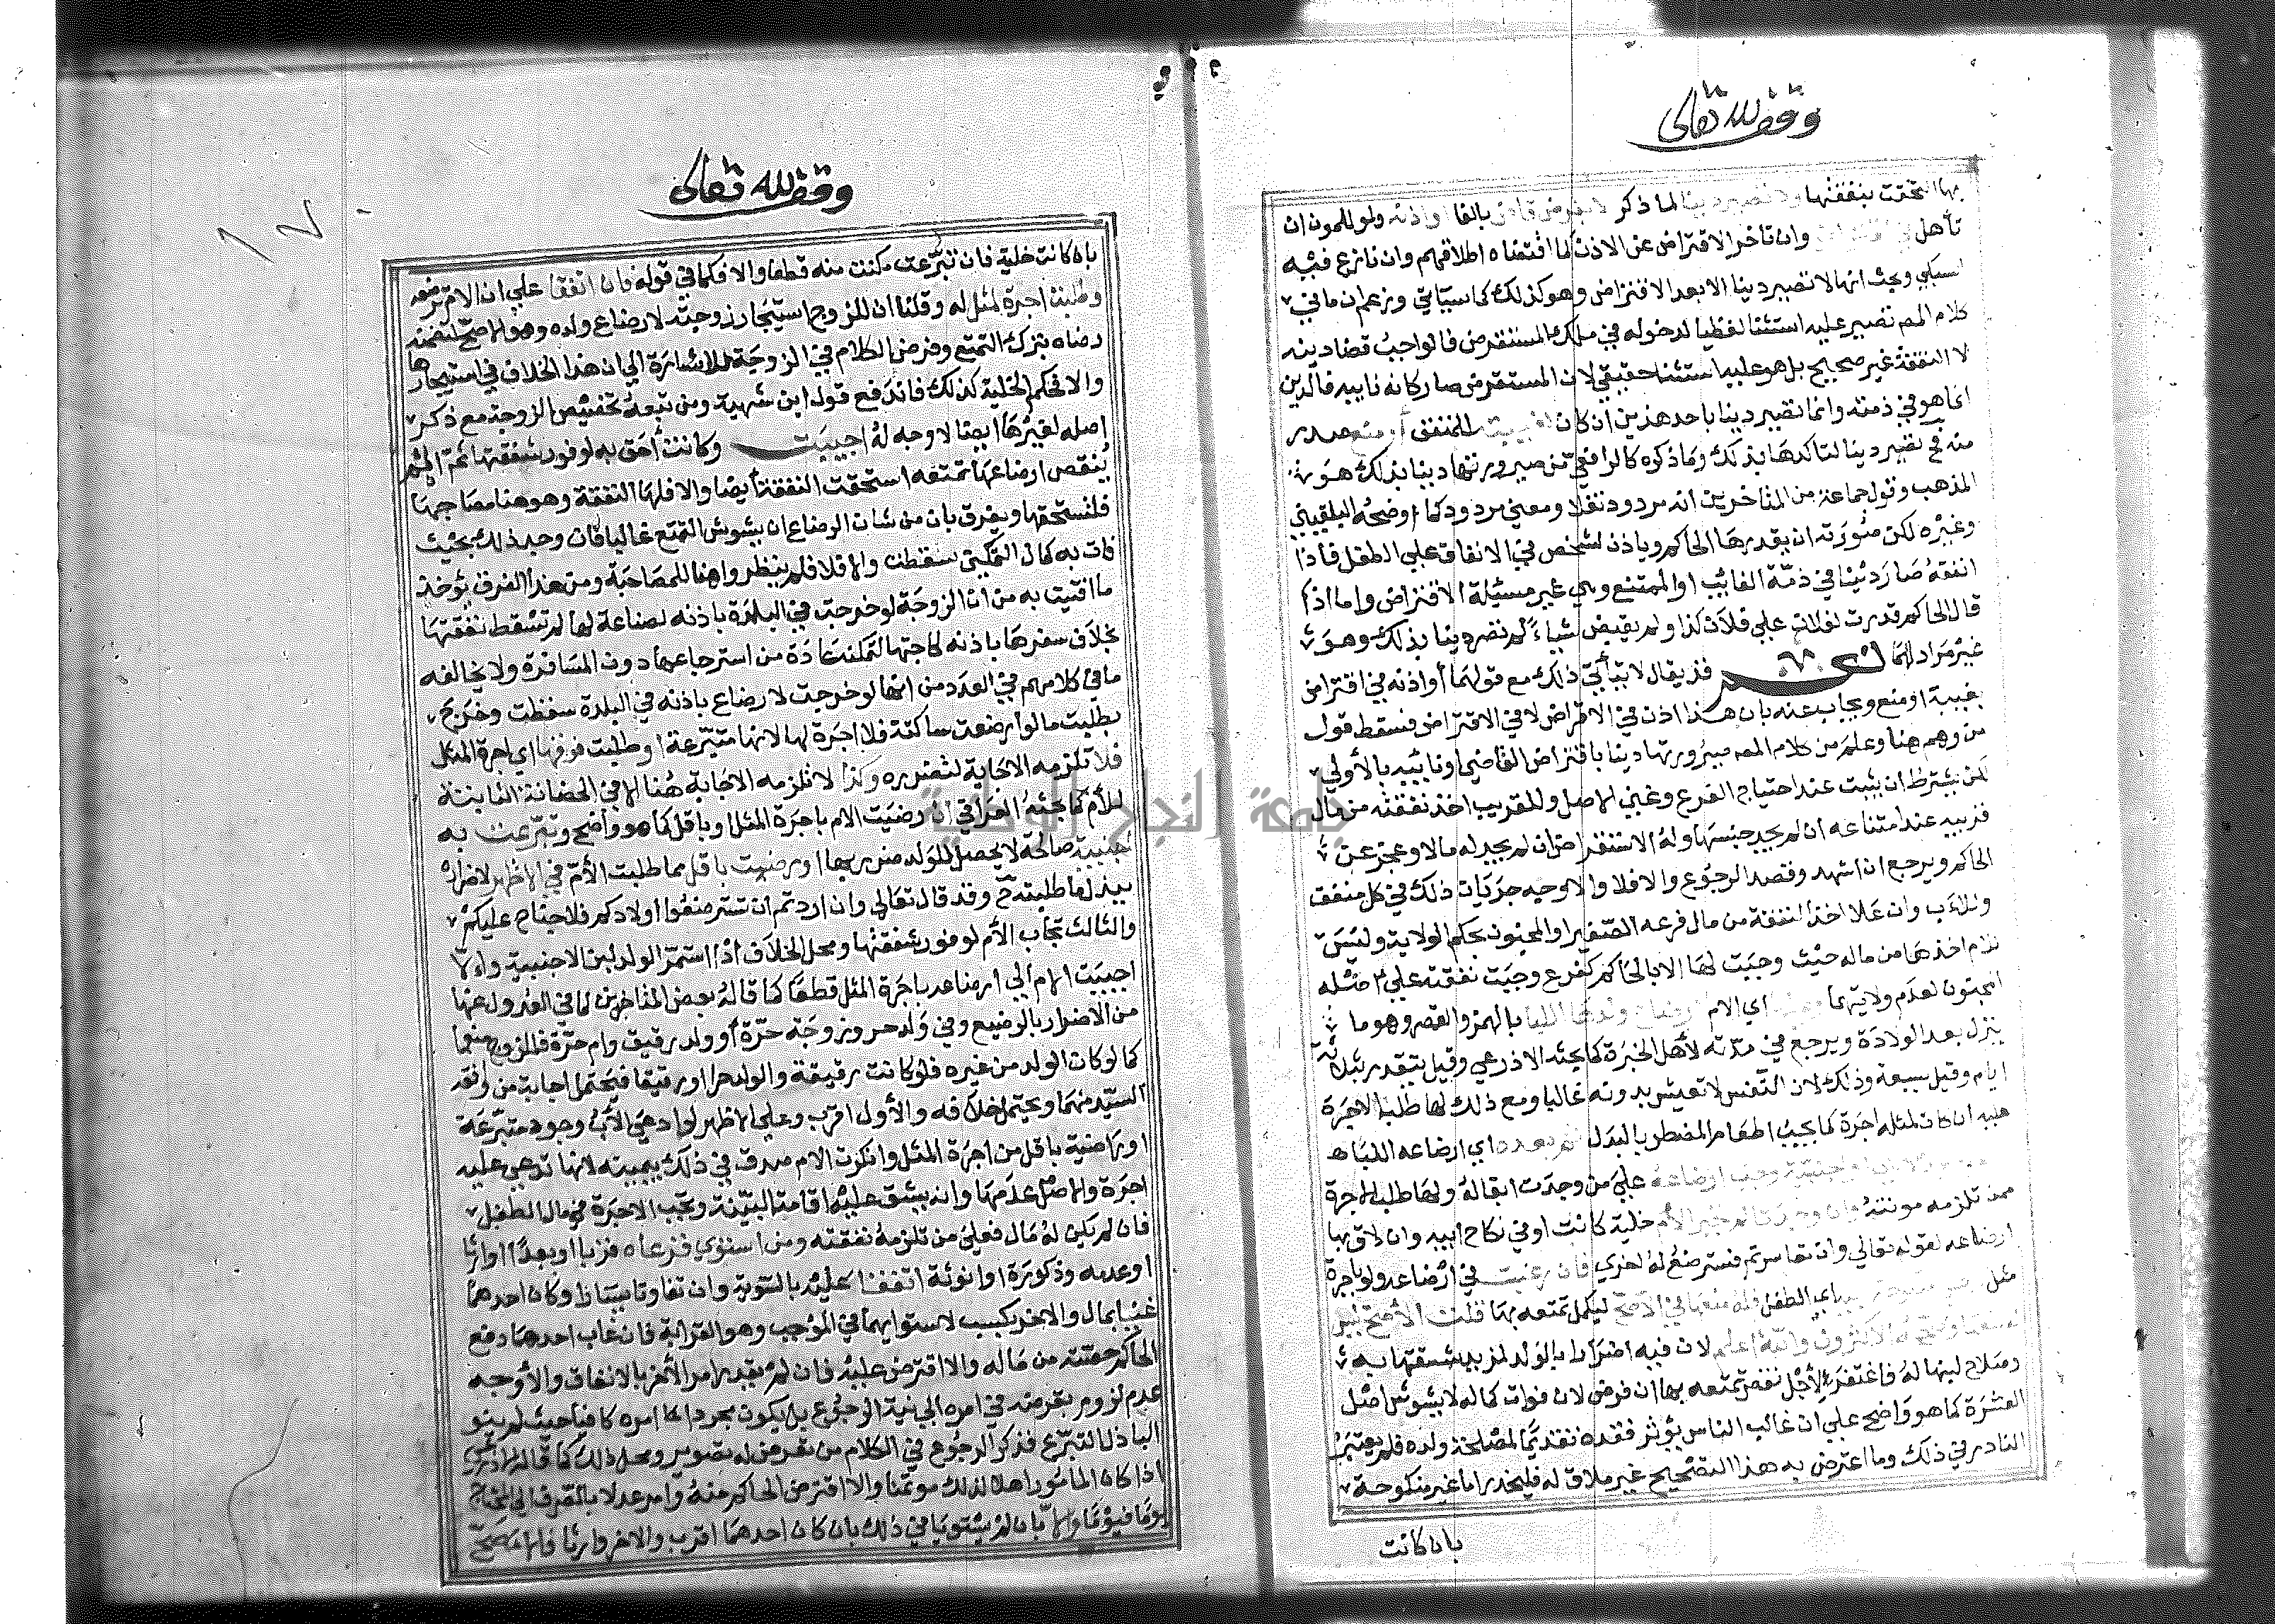 وقف لله تعالى
بها استحقت بنفقتها ولا تصير دينا لما ذكر لا بفرض قاض بالفا او اذنه ولو للمون ان
تأهل وان تاخر الاقتراض عن الاذن كما اقتضاه اطلاقهم وان نازع فيه
السبكي وبحث انها لا تصير دينا الا بعد الاقتراض وهو كذلك كما سياتي وزعم ان ما في
كلام المص تصير عليه استثنا لفظيا لدخوله في ملك المستقرض فالواجب قضا دينه
لا النفقة غير صحيح بل هو عليه استثنا حقيقي لان المستقرض صار كانه نايبه فالدين
انما هو في ذمته وانما تصير دينا باحد هذين ان كان لغيبة المنفق او منع صدر
منه فح تصير دينا لتاكدها بذلك وما ذكره كالرافعي من صيرورتها دينا بذلك هو
المذهب وقول جماعة من المتاخرين انه مردود نقلا ومعنى مردود كما اوضحه البلقيني
وغيره لكن صورته ان يقدرها الحاكم وياذن لشخص في الانفاق علي الطفل فاذا
انفقه صار دينا في ذمة الغائب او الممتنع وهي غير مسئلة الاقتراض واما اذا
قال الحاكم قدرت لفلان علي فلان كذا ولم يقبض شياء لم تصر دينا بذلك وهو
غير مرادهما قد يقال لا يتأتي ذلك مع قولهما أو اذنه في اقتراض
بغيبة او منع ويجاب عنه بان هذا اذن في الاقراض لا في الاقتراض فسقط قول
من وهم هنا وعلم من كلام المص صيرورتها دينا باقتراض القاضي او نائبه بالأولي
لكن يشترط ان يثبت عنده احتياج الفرع وغني الاصل وللقريب اخذ نفقته من مال
قريبه عند امتناعه ان لم يجد جنسها وله الاستقراض ان لم يجد له مالا وعجز عن
الحاكم ويرجع ان اشهد وقصد الرجوع والا فلا والاوجه جريان ذلك في كل منفق
وللاب وان علا اخذ النفقة من مال فرعه الصغير او المجنون بحكم الولاية وليس
للام اخذها من ماله حيث وجبت لها الا بالحاكم كفرع وجبت نفقته علي اصله
المجنون لعدم ولايتهما اي الام ارضاع ولدها اللبا بالهمز والقصر وهو ما
ينزل بعد الولادة ويرجع في مدته لأهل الخبرة كما بحثه الاذرعي وقيل يتقدر بثلاثة
ايام وقيل بسبعة وذلك لان النفس لا تعيش بدونه غالبا ومع ذلك لها طلب الاجرة
عليه ان كان لمثله اجرة كما يجب اطعام المضطر بالبدل ثم بعده اي ارضاعه اللبا
وجب ارضاعه علي من وجدت ابقاله ولها طلب الاجرة
ممن تلزمه مونته وان وجدتا لم تجبر الأم خلية كانت او في نكاح ابيه وان لاق بها
ارضاعه لقوله تعالي وان تعاسرتم فسترضع له اخري فان رغبت في ارضاعه ولو باجرة
مثل اي الطفل فله منعها في الاصح ليكمل تمتعه بها قلت الأصح ليس
له منعها وصححه الاكثرون والله اعلم لان فيه اضرارا بالولد لمزيد شفقتها به
وصلاح لبنها له فاغتفر لأجل نقص تمتعه بها ان فرض لان فوات كماله لا يشوش اصل
العشرة كما هو واضح علي ان غالب الناس يؤثر فقده تقديما لمصلحة ولده فلم يعتبر
النادر في ذلك وما اعترض به هذا التصحيح غير ملاق له فليحذر اما غير منكوحة
بان كانت
وقف لله تعالى
بان كانت خلية فان تبرعت مكنت منه قطعا والا فكما في قوله فان اتفقا علي ان الام ترضعه
وطلبت اجرة لمثل له وقلنا ان للزوج استيجار زوجته لارضاع ولده وهو الاصح لتضمنه
رضاه بترك التمتع وفرض الكلام في الزوجة للاشارة الي ان هذا الخلاف في استيجارها
والا فحكم الخلية كذلك فاندفع قول ابن شهبة ومن تبعه تخصيص الزوجة مع ذكر
اصله لغيرها ايضا لا وجه له اجيبت وكانت أحق به لوفور شفقتها ثم ان لم
ينقص ارضاعها تمتعه استحقت النفقة أيضا والا فلها النفقة وهو هنا مصاحبها
فلتستحقها ويفرق بان من شان الرضاع ان يشوش التمتع غالبا فان وجد ذلك بحيث
فات به كمال التمكين سقطت والا فلا فلم ينظروا هنا للمصاحبة ومن هذا الفرق يؤخذ
ما افتيت به من ان الزوجة لو خرجت في البلدة باذنه لصناعة لها لم تسقط نفقتها
بخلاف سفرها باذنه لحاجتها لتمكنه عادة من استرجاعها دون المسافرة ولا يخالفه
ما في كلامهم في العدد من انها لو خرجت لارضاع باذنه في البلدة سقطت وخرج
بطلبت ما لو ارضعت ساكتة فلا اجرة لها لانها متبرعة او طلبت فوقها اي اجرة المثل
فلا تلزمه الاجابة لتضرره وكذا لا تلزمه الاجابة هنا لا في الحضانة الثابتة
للأم كما بحثه العراقي ان رضيت الام باجرة المثل او باقل كما هو واضح وتبرعت به
اجنبية صالحة لا يحصل للولد ضرر بها او رضيت باقل مما طلبت الأم في الاظهر لاضراره
ببذل ما طلبته ح وقد قال تعالي وان اردتم ان تسترضعوا اولادكم فلا جناح عليكم
والثالث تجاب الأم لوفور شفقتها ومحل الخلاف اذا استمر الولد لبن الاجنبية والا
اجيبت الام الي ارضاعه باجرة المثل قطعا كما قاله بعض المتاخرين لما في العدول عنها
من الاضرار بالرضيع وفي ولد حر وزوجة حرة أو ولد رقيق وام حرة فللزوج منعها
كما لو كان الولد من غيره فلو كانت رقيقة والولد حرا او رقيقا فيحتمل اجابة من وافقه
السيد منهما ويحتمل خلافه والأول اقرب وعلي الاظهر لو ادعي الأب وجود متبرعة
او راضية باقل من اجرة المثل وانكرت الام صدق في ذلك بيمينه لانها تدعي عليه
اجرة والاصل عدمها وانه يشق عليه اقامة البينة وتجب الاجرة في مال الطفل
فان لم يكن له مال فعلي من تلزمه نفقته ومن استوي فرعاه قربا او بعدا او ارثا
او عدمه وذكورة او انوثة انفقا عليه بالسوية وان تفاوتا يسارا وكان احدهما
غنيا بمال والاخر بكسب لاستوايهما في الموجب وهو القرابة فان غاب احدهما دفع
الحاكم حصته من ماله والا اقترض عليه فان لم يقدر امر الأخر بالانفاق والأوجه
عدم لزوم تعرضه في امره الي نية الرجوع بل يكون مجرد امره كافيا حيث لم ينو
الباذل التبرع فذكر الرجوع في الكلام من تعرض له تصوير ومحل ذلك كما قاله الاذرعي
اذا كان المامور اهلا لذلك موتمنا والا اقترض الحاكم منه وامر عدلا بالصرف الي المحتاج
يوما فيوما والا بان لم يستويا في ذلك بان كان احدهما اقرب والاخر وارثا فالاصح